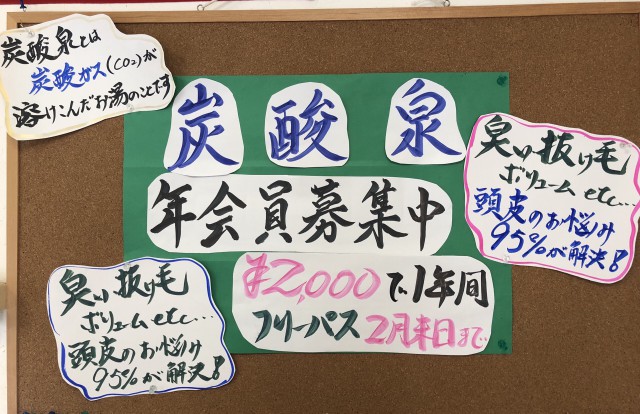 炭酸泉とは
炭酸ガス(CO₂)が
溶けこんだお湯のことです
炭酸泉
年会員募集中
¥2,000で1年間
フリーパス2月末日まで
臭い抜け毛
ボリュームetc...
頭皮のお悩み
95%が解決!
臭い抜け毛
ボリュームetc...
頭皮のお悩み
95%が解決!